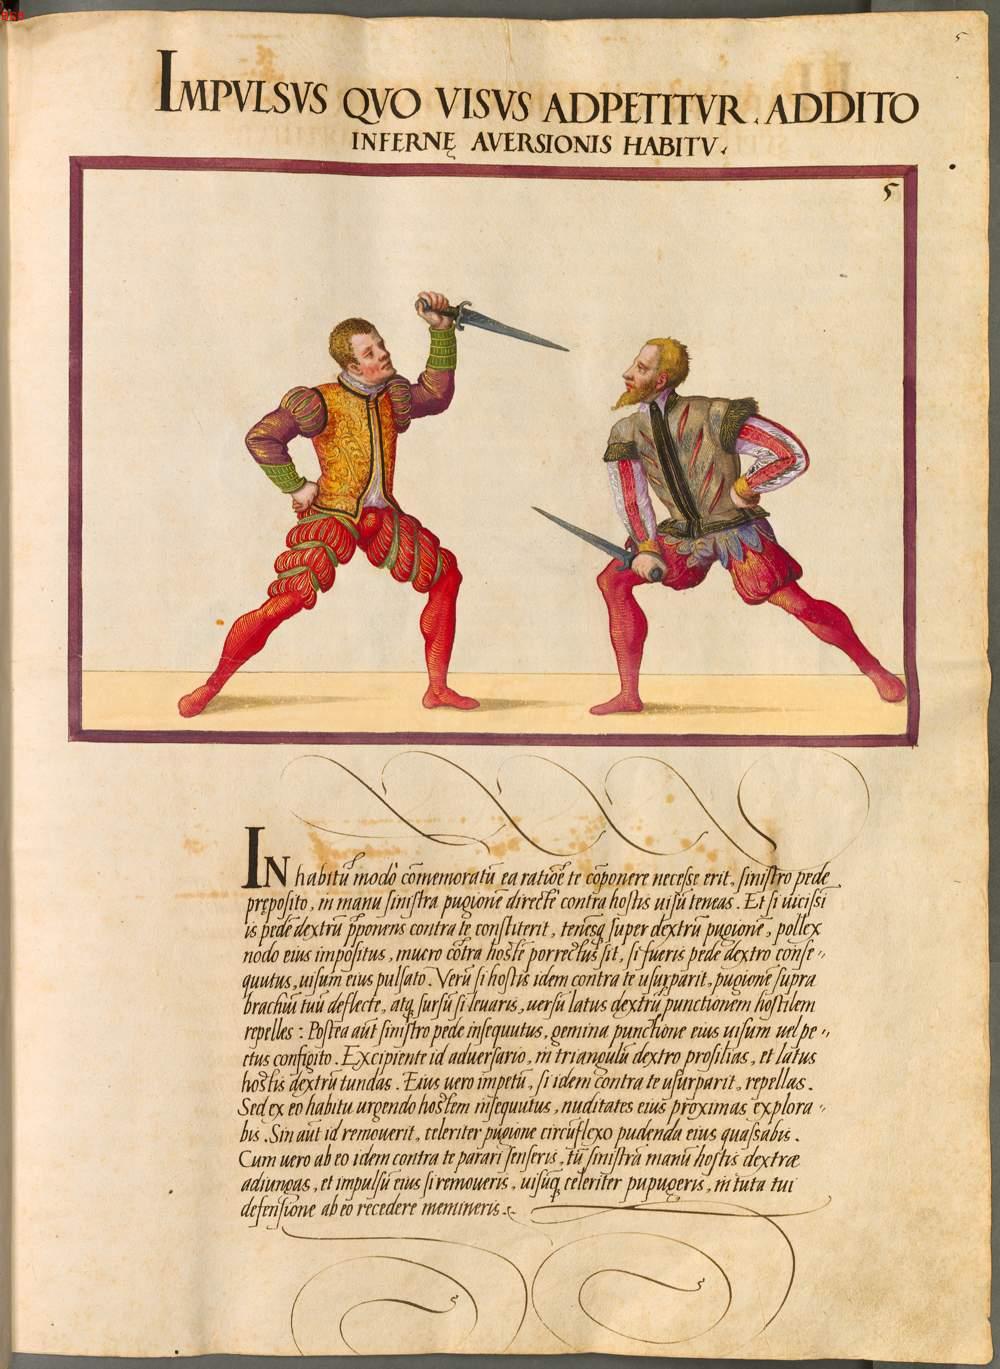 5
IMPVLSVS QVO VISVS ADPETITVR, ADDITO
INFERNĘ AVERSIONIS HABITV.
5
IN habitũ modo cõmemoratũ ea ratiõe te cõponere necesse erit, sinistro pede
pręposito, in manu sinistra pugionẽ directe contra hostis uisũ teneas. Et si uicissi
is pedẽ dextrũ p̃ponens contra te constiterit, tenesq́ super dextrũ pugionẽ, pollex
nodo eius impositus, mucro cõtra hostẽ porrectus sit, si fueris pede dextro conse-
quutus, uisum eius pulsato. Verũ si hostis idem contra te usurparit, pugionẽ supra
brachiũ tuũ deflecte, atq́ sursũ si leuaris, uersũ latus dextrũ punctionem hostilem
repelles: Postea aũt sinistro pede insequutus, gemina punctione eius uisum uel pe-
ctus configito. Excipiente id aduersario, in triangulũ dextro prosilias, et latus
hostis dextrũ tundas. Eius uero impetũ, si idem contra te usurparit, repellas.
Sed ex eo habitu urgendo hostem insequutus, nuditates eius proximas explora-
bis. Sin aũt id remouerit, celeriter pugione circũflexo pudenda eius quassabis.
Cum uero ab eo idem contra te parari senseris, tũ sinistrã manũ hostis dextrae
adiungas, et impulsũ eius si remoueris, uisũq́ celeriter pupugeris, in tuta tui
defensione ab eo recedere memineris.